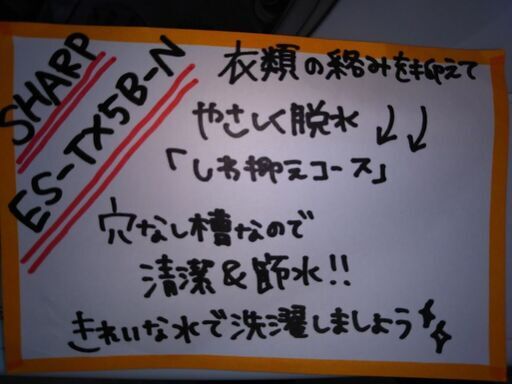 SHARP
ES-TX5B-N
衣類の絡みを抑えて
やさしく脱水
「しわ抑えコース」
穴なし槽なので
清潔&節水!!
きれいな水で洗濯しましょう